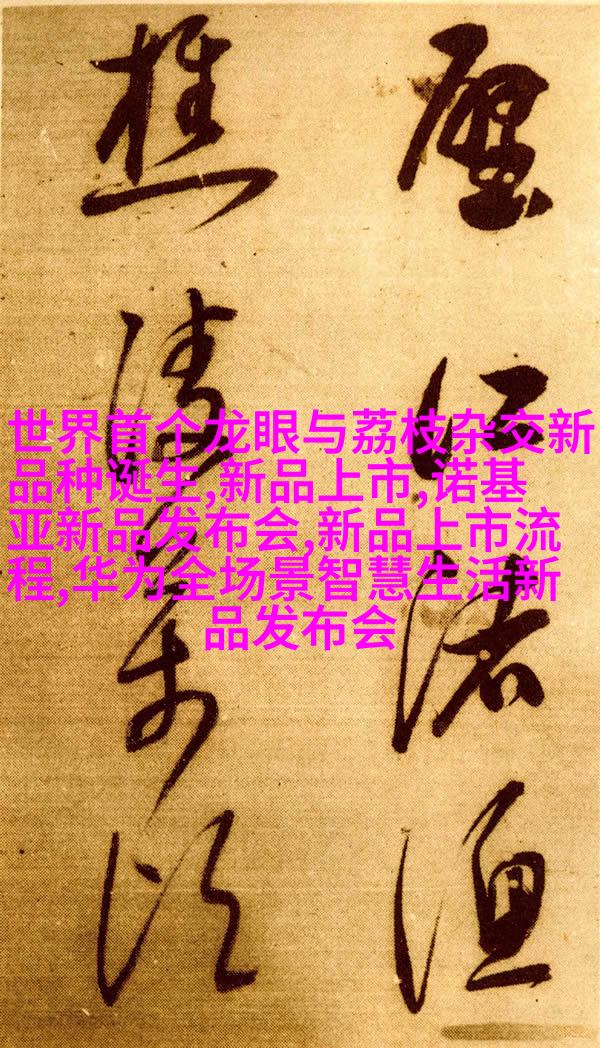 世界首个龙眼与荔枝杂交新
品种诞生,新品上市,诺基
亚新品发布会,新品上市流
程,华为全场景智慧生活新
品发布会
江渚漁
樵凌萬頃